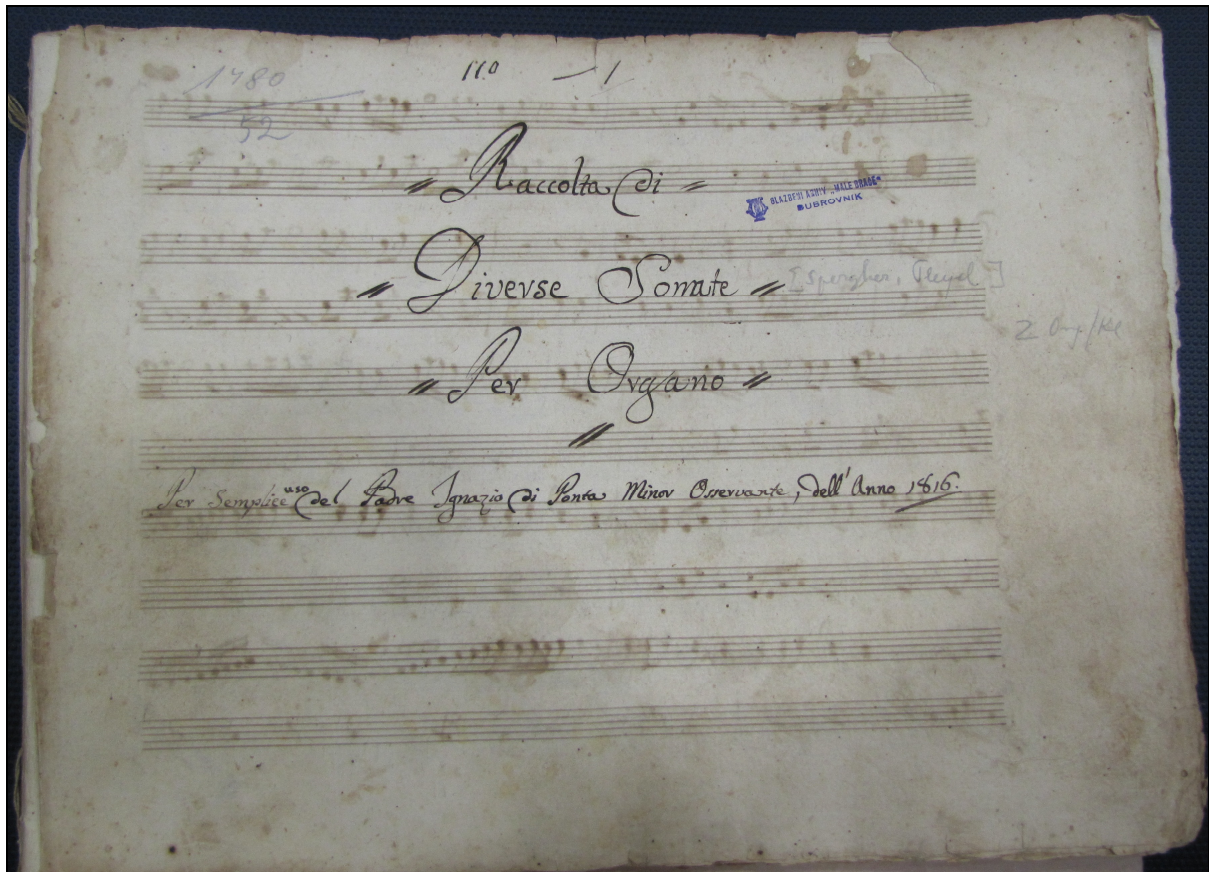 1780
52
11.0 — 1
= Raccolta di =
GLAZBENI ARHIV „MALE BRAĆE"
DUBROVNIK
= Diverse Sonate =
[Spergher, Pleyel]
= Per Organo =
Per Semplice uso del Padre Ignazio di Ponta Minor Osservante, dell' Anno 1816.